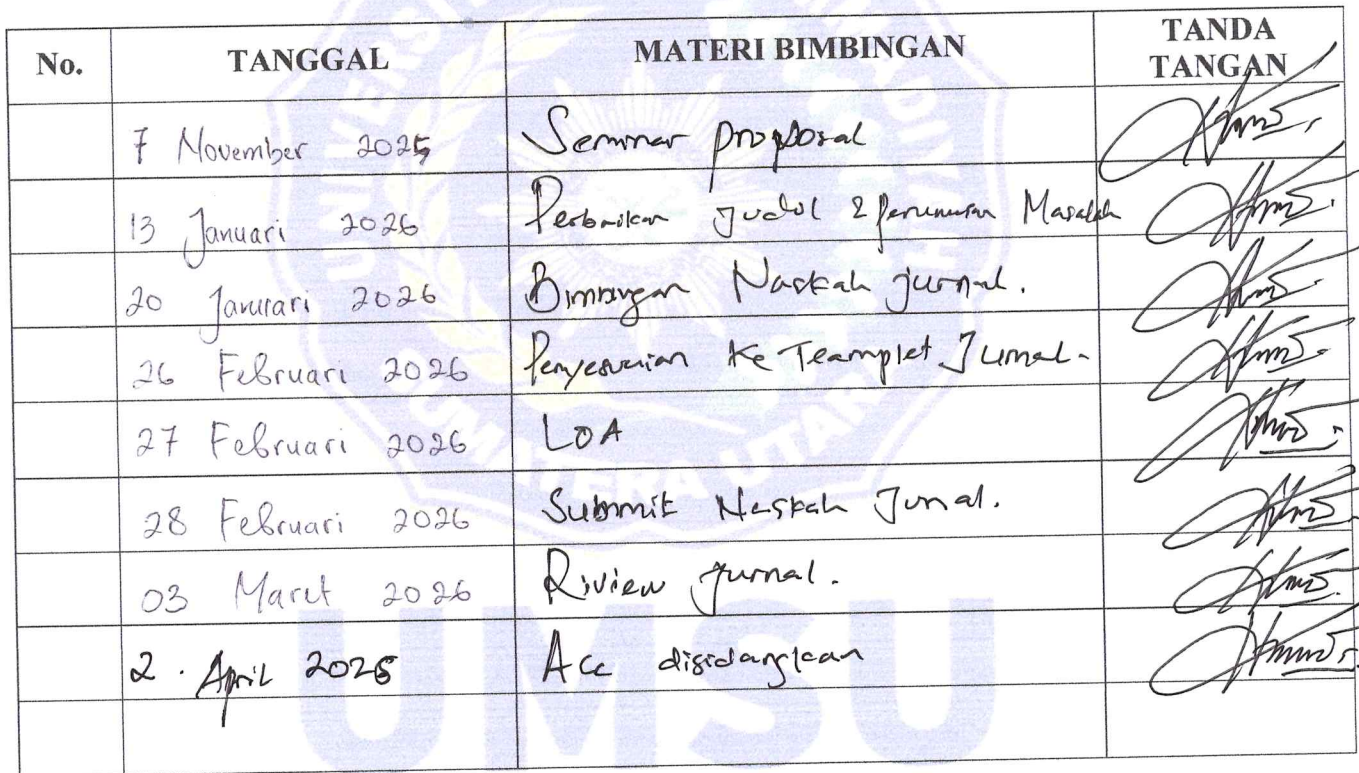 No. TANGGAL MATERI BIMBINGAN TANDA TANGAN
7 November 2025 Seminar proposal
13 Januari 2026 Perbaikan Judul & Perumusan Masalah
20 Janurari 2026 Bimbingan Naskah jurnal.
26 Februari 2026 Penyesuaian Ke Teamplet Jurnal.
27 Februari 2026 LOA
28 Februari 2026 Submit Naskah Junal.
03 Maret 2026 Riview Jurnal.
2 . April 2026 Acc disidangkan
UMSU